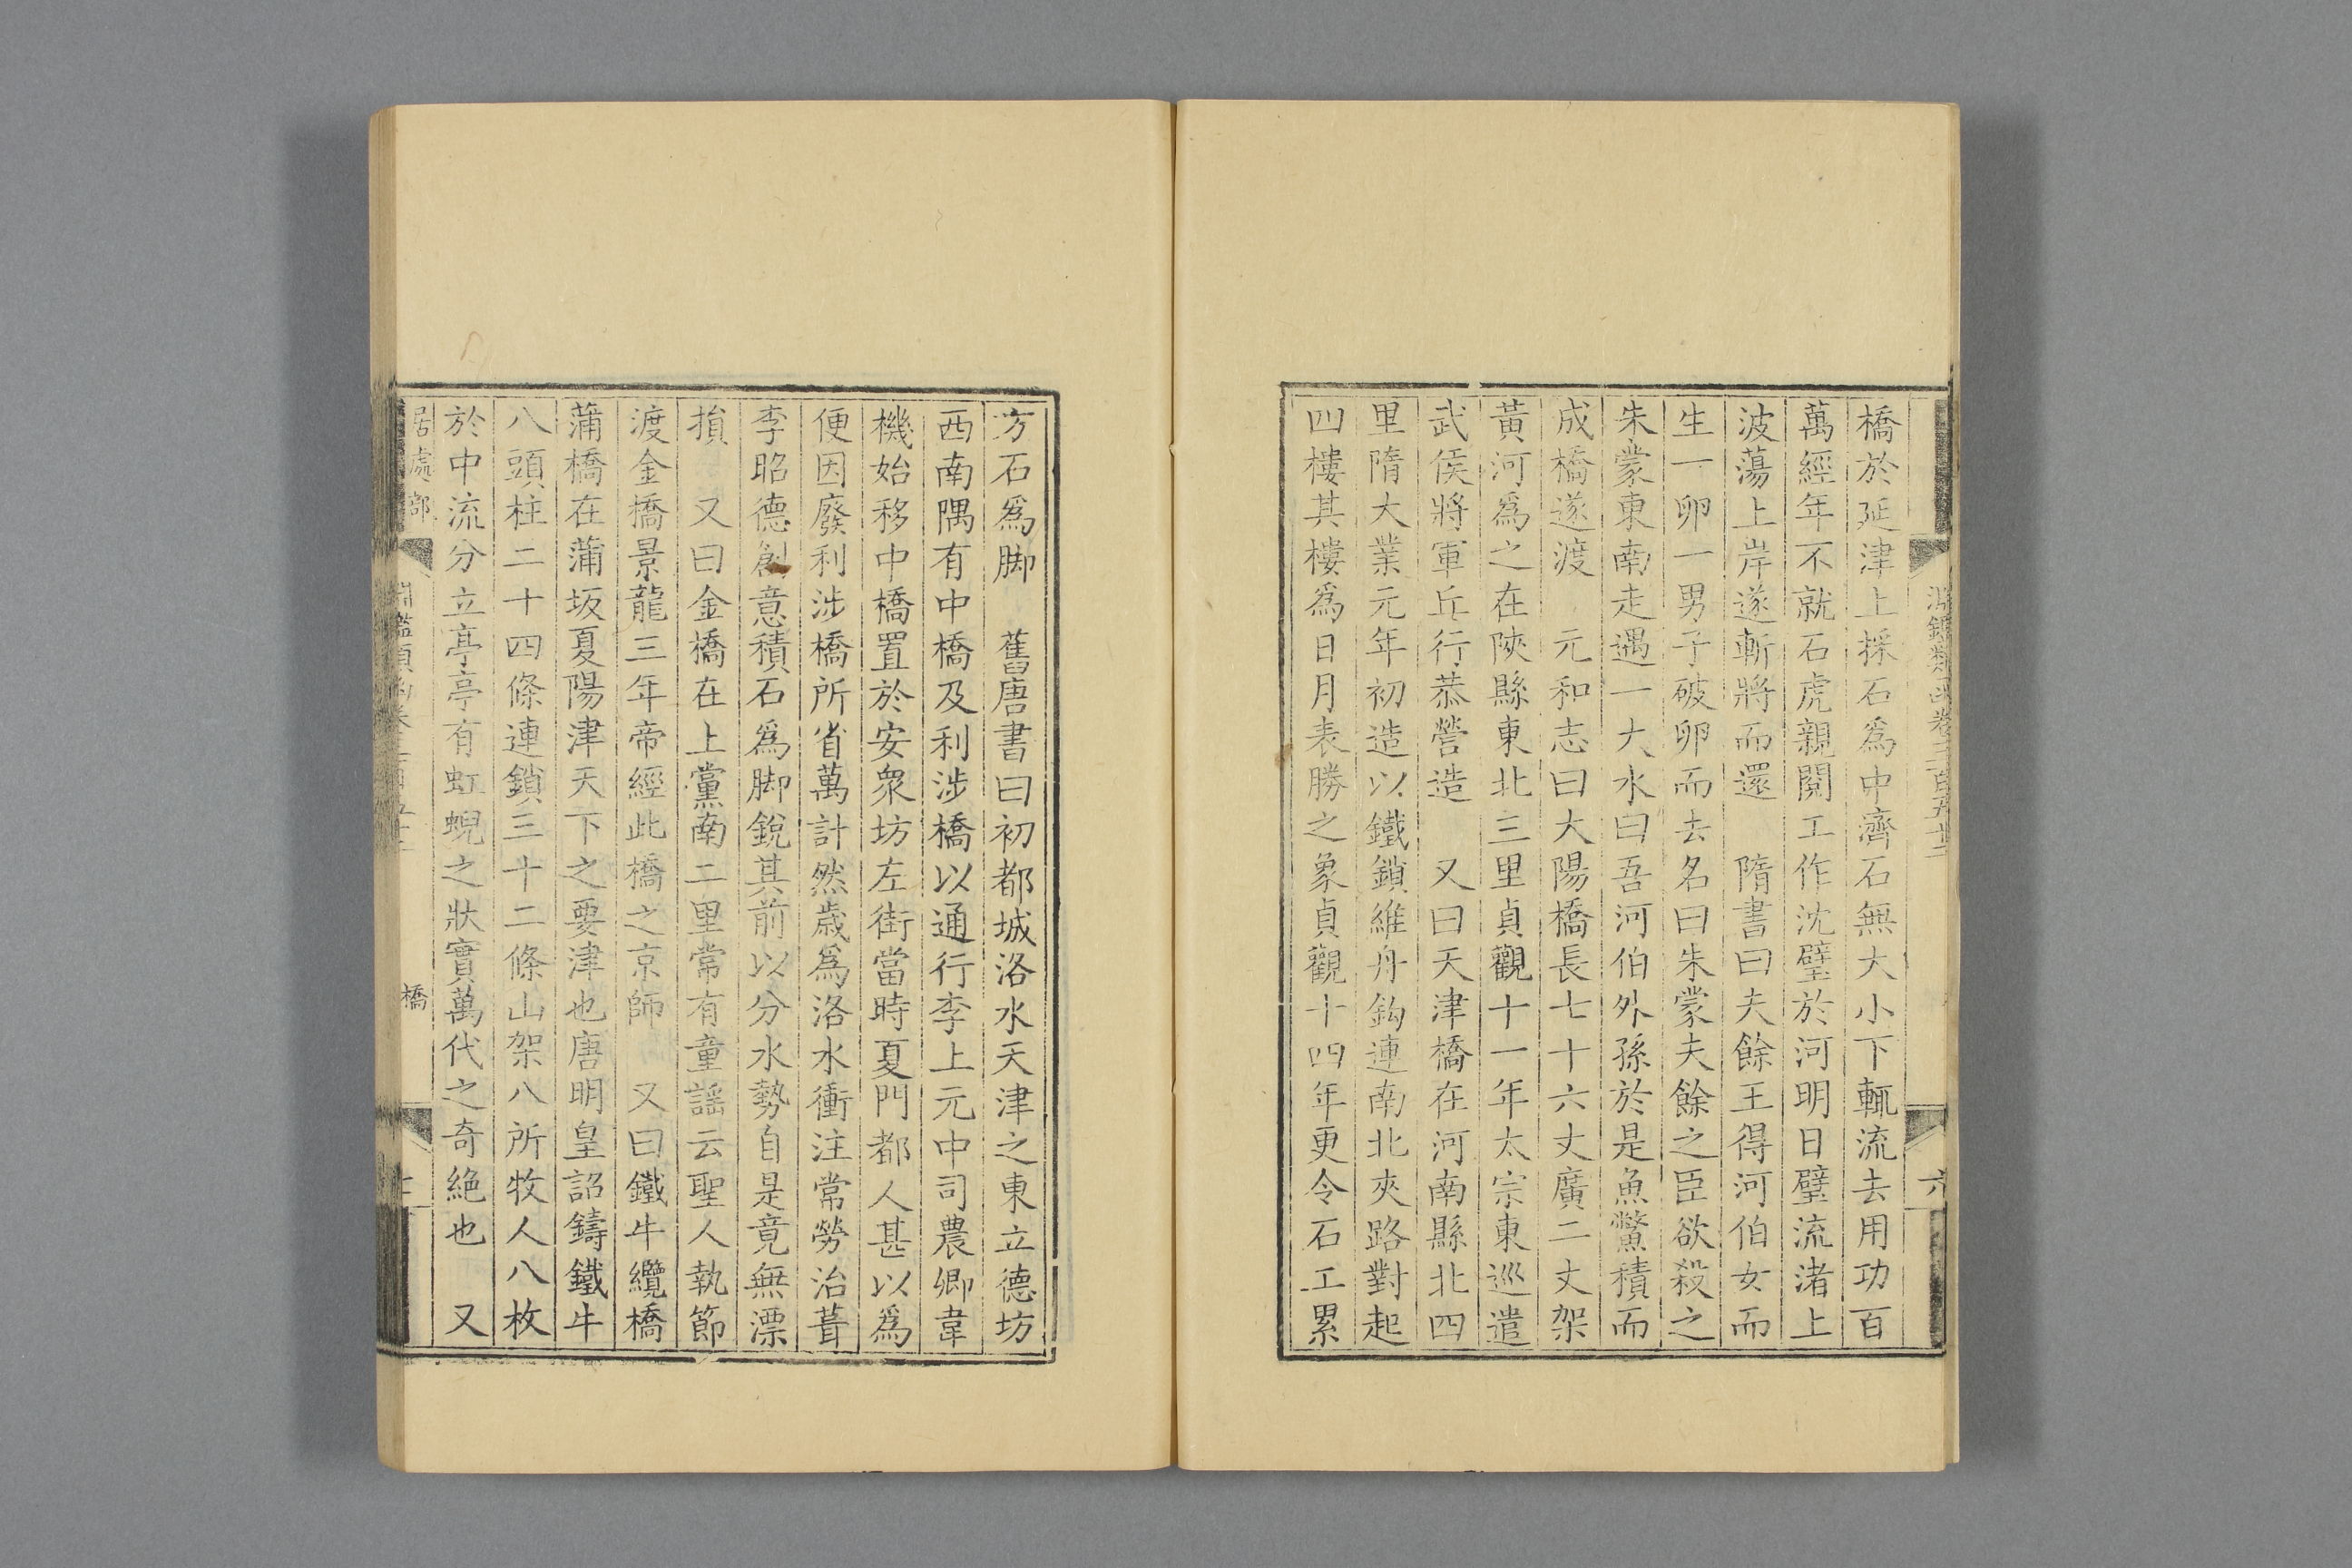 淵鑑類函卷三百五十二
六
橋於延津上採石爲中濟石無大小下輒流去用功百
萬經年不就石虎親閱工作沈璧於河明日璧流渚上
波蕩上岸遂斬將而還　隋書曰夫餘王得河伯女而
生一卵一男子破卵而去名曰朱蒙夫餘之臣欲殺之
朱蒙東南走遇一大水曰吾河伯外孫於是魚鱉積而
成橋遂渡　元和志曰大陽橋長七十六丈廣二丈架
黃河爲之在陝縣東北三里貞觀十一年太宗東巡遣
武侯將軍丘行恭營造　又曰天津橋在河南縣北四
里隋大業元年初造以鐵鎖維舟鈎連南北夾路對起
四樓其樓爲日月表勝之象貞觀十四年更令石工累
方石爲脚　舊唐書曰初都城洛水天津之東立德坊
西南隅有中橋及利涉橋以通行李上元中司農卿韋
機始移中橋置於安衆坊左街當時夏門都人甚以爲
便因廢利涉橋所省萬計然歲爲洛水衝注常勞治葺
李昭德創意積石爲脚銳其前以分水勢自是竟無漂
損　又曰金橋在上黨南二里常有童謠云聖人執節
渡金橋景龍三年帝經此橋之京師　又曰鐵牛纜橋
蒲橋在蒲坂夏陽津天下之要津也唐明皇詔鑄鐵牛
八頭柱二十四條連鎖三十二條山架八所牧人八枚
於中流分立亭亭有虹蜺之狀實萬代之奇絕也　又
居處部
橋